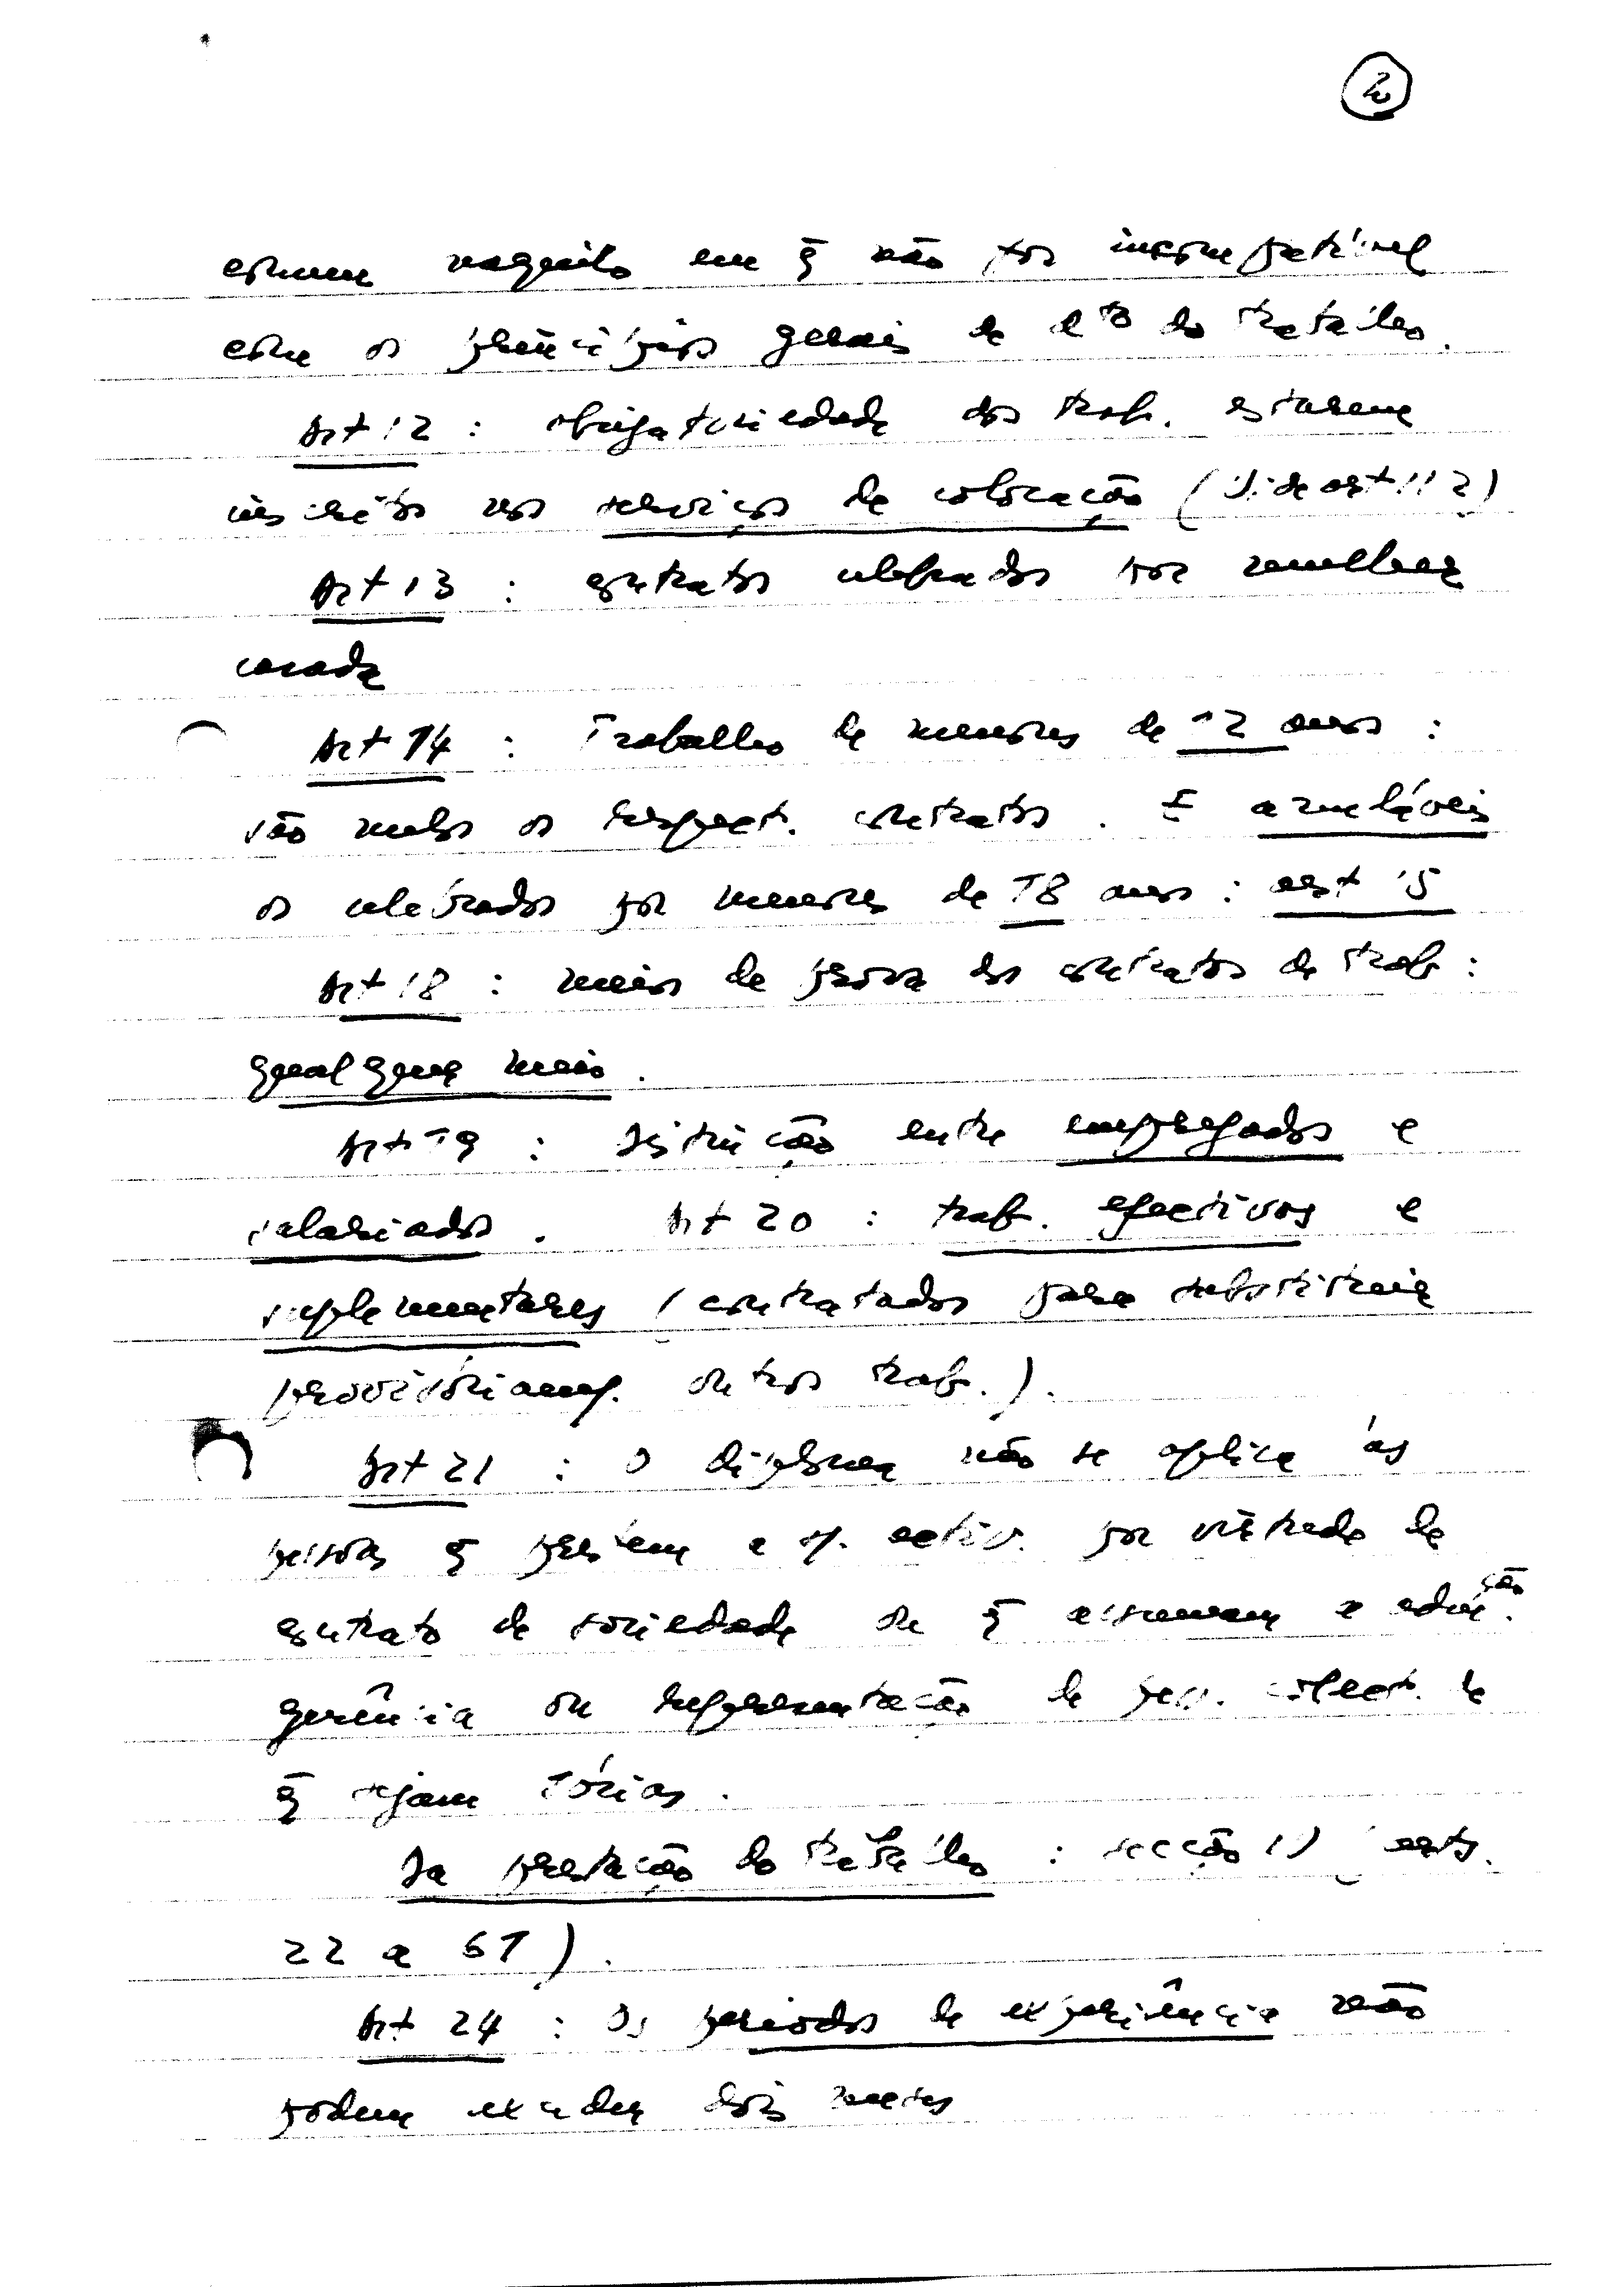 2
comum naquilo em q̄ não for incompatível
com os princípios gerais de dto do trabalho.
Art 12 : obrigatoriedade dos trab. estarem
inscritos nos serviços de colocação (vide art 112)
Art 13 : contratos celebrados por mulher
casada
Art 14 : Trabalho de menores de 12 anos :
são nulos os respect. contratos. E anuláveis
os celebrados por menores de 18 anos : art 15
Art 18 : meios de prova dos contratos de trab :
qualquer meio.
Art 19 : Distinção entre empregados e
salariados. Art 20 : trab. efectivos e
suplementares (contratados para substituir
provisóriam. outros trab.).
Art 21 : O diploma não se aplica às
pessoas q̄ prestem a s/. activ. por virtude de
contrato de sociedade ou q̄ assumam a admção.
gerência ou representação de pess. colect. de
q̄ sejam sócias.
Da prestação do trabalho : secção IV (arts.
22 a 61).
Art 24 : Os períodos de experiência não
podem exceder dois meses